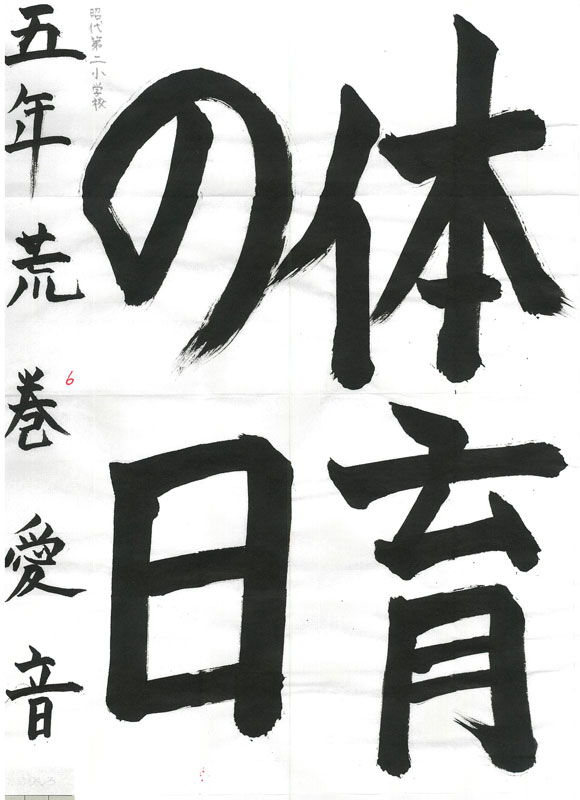 体育
の日
昭代第二小学校
五年荒巻愛音
6